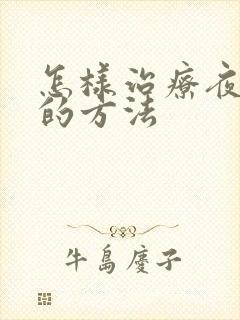 怎樣治療夜
的方法
牛島慶子